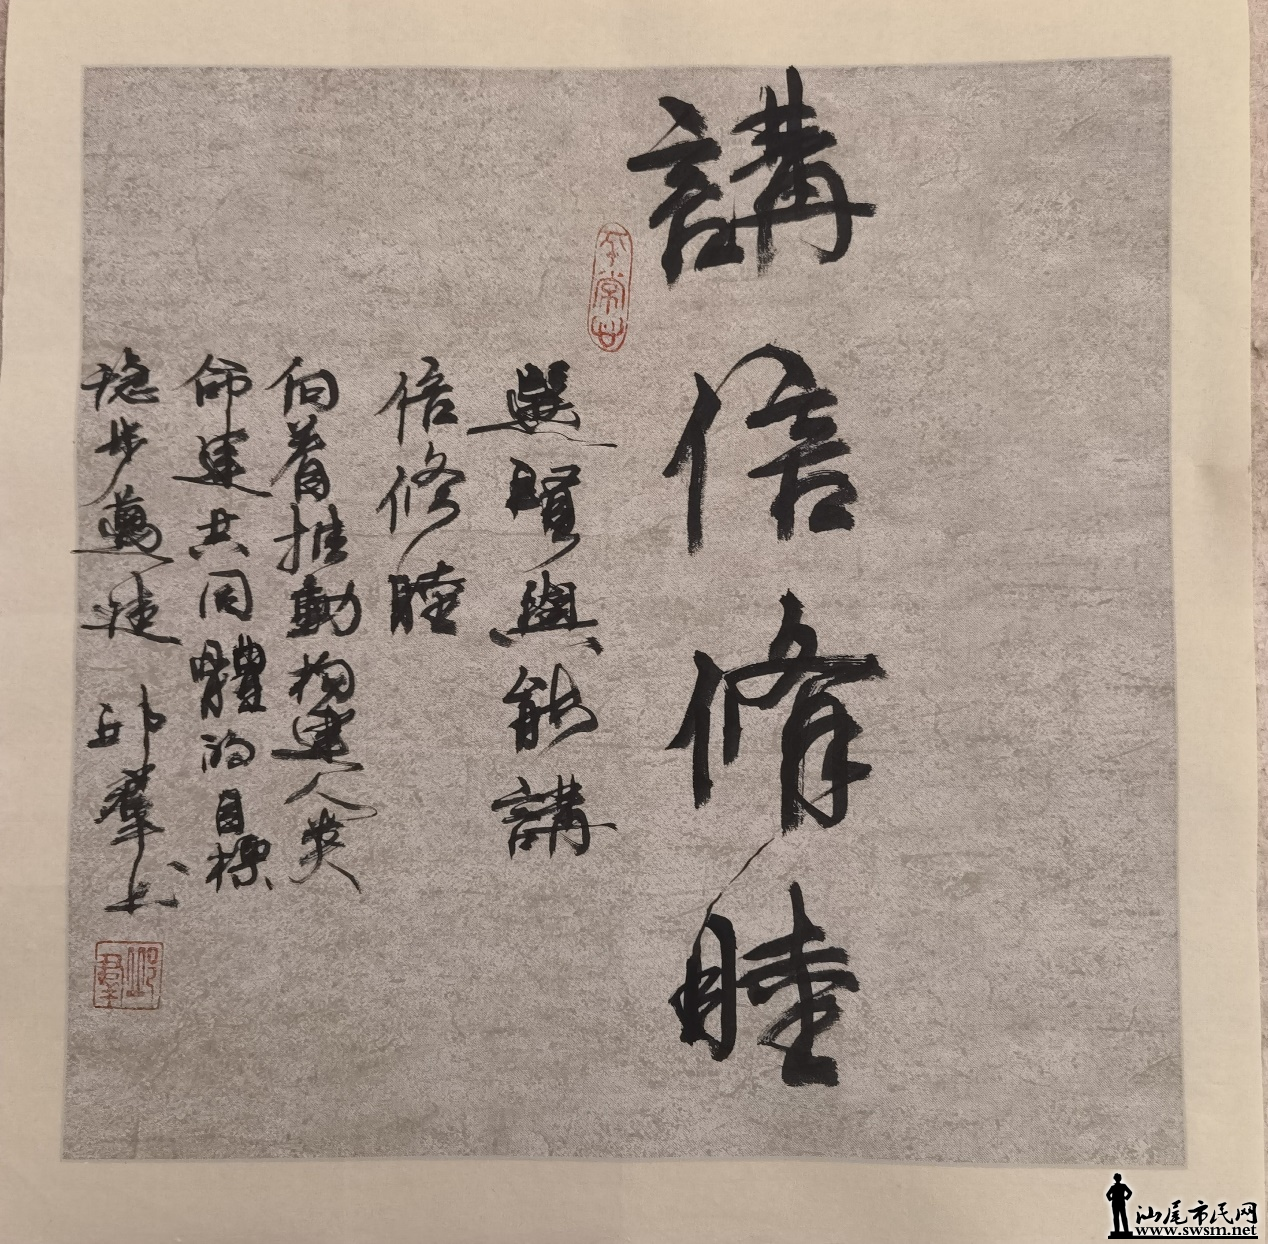 講信修睦
選賢與能講
信修睦
向着推動構建人類
命運共同體的目標
穩步邁進 邱羣书
邱羣
汕尾市民网
www.swsm.net